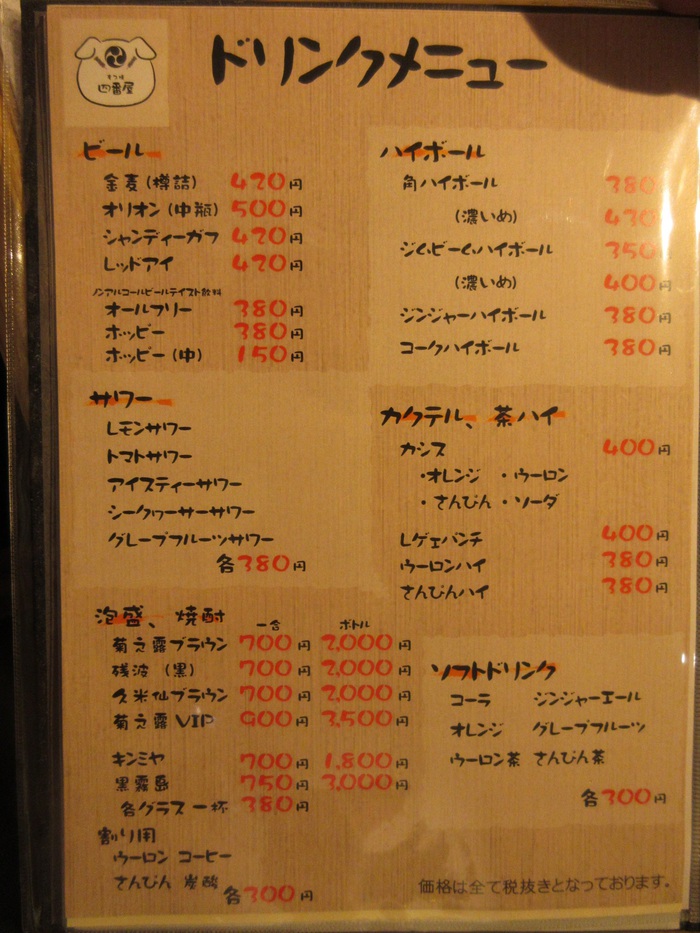 もつ焼
四番屋
ドリンクメニュー
ビール
金麦(樽詰) 420円
オリオン(中瓶) 500円
シャンディーガフ 420円
レッドアイ 420円
ノンアルコールビールテイスト飲料
オールフリー 380円
ホッピー 380円
ホッピー(中) 150円
サワー
レモンサワー
トマトサワー
アイスティーサワー
シークヮーサーサワー
グレープフルーツサワー
各380円
泡盛、焼酎 一合 ボトル
菊之露ブラウン 700円 2,000円
残波(黒) 700円 2,000円
久米仙ブラウン 700円 2,000円
菊之露VIP 900円 3,500円
キンミヤ 700円 1,800円
黒霧島 750円 3,000円
各グラス一杯 380円
割り用
ウーロン コーヒー
さんぴん 炭酸
各300円
ハイボール
角ハイボール 380円
(濃いめ) 430円
ジムビームハイボール 350円
(濃いめ) 400円
ジンジャーハイボール 380円
コークハイボール 380円
カクテル、茶ハイ
カシス 400円
・オレンジ ・ウーロン
・さんぴん ・ソーダ
レゲエパンチ 400円
ウーロンハイ 380円
さんぴんハイ 380円
ソフトドリンク
コーラ ジンジャーエール
オレンジ グレープフルーツ
ウーロン茶 さんぴん茶
各300円
価格は全て税抜きとなっております。